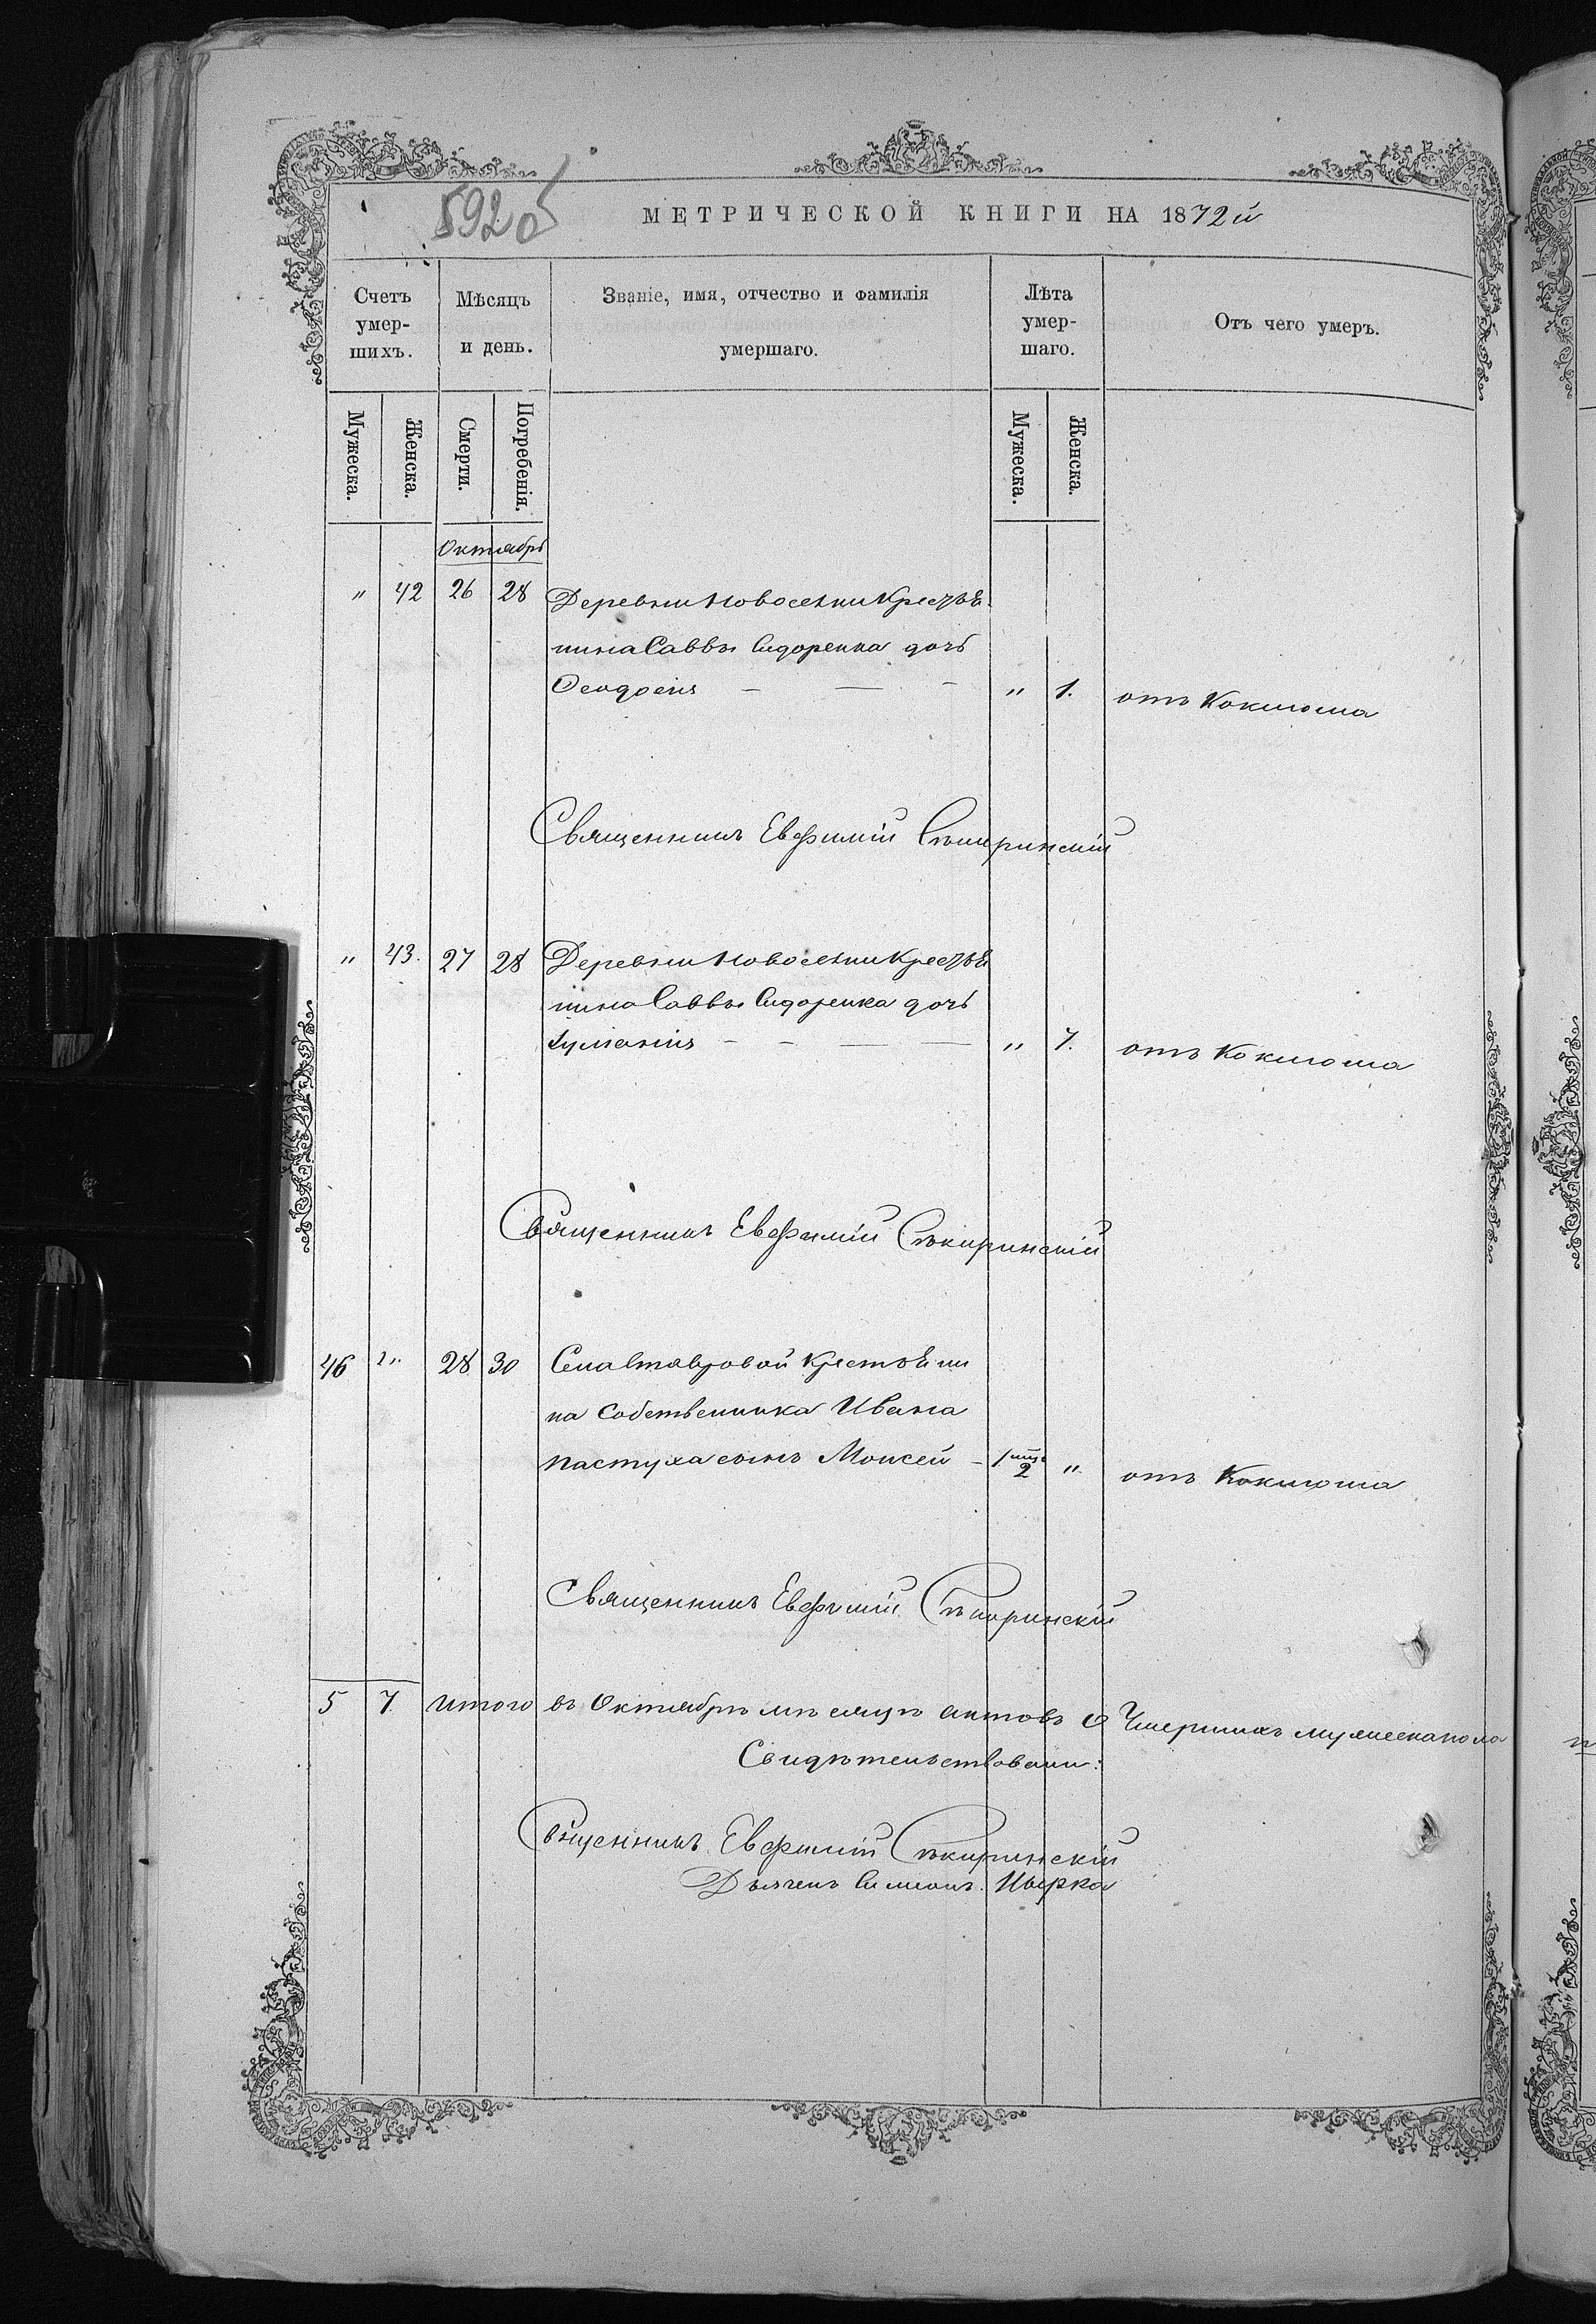 592об
МЕТРИЧЕСКОЙ КНИГИ НА 1872й
Счетъ умер-шихъ.
Мѣсяцъ и день.
Званіе, имя, отчество и фамилія умершаго.
Лѣта умер-шаго.
Отъ чего умеръ.
Мужеска. Женска. Смерти. Погребенія. Мужеска. Женска.
Октябрь
" 42 26 28 Деревни Новоселки Крестья
нина Саввы Сидоренка дочь
Феодосія " 1. отъ Коклюша
Священникъ Евфимій Сѣкиринскій
" 43. 27 28 Деревни Новоселки Крестья
нина Саввы Сидоренка дочь
Іуліанія " 7. отъ Коклюша
Священникъ Евфимій Сѣкиринскій
46 " 28 30 Села Ставровой Крестьяни
на Собственника Ивана
пастуха сынъ Моисей 1/2 " отъ Коклюша
Священникъ Евфимій Сѣкиринскій
5 7 Итого въ Октябрѣ мѣсяцѣ актовъ о Умершихъ мужеска пола
Свидѣтельствовали:
Священникъ Евфимій Сѣкиринскій
Дьячекъ Симеонъ